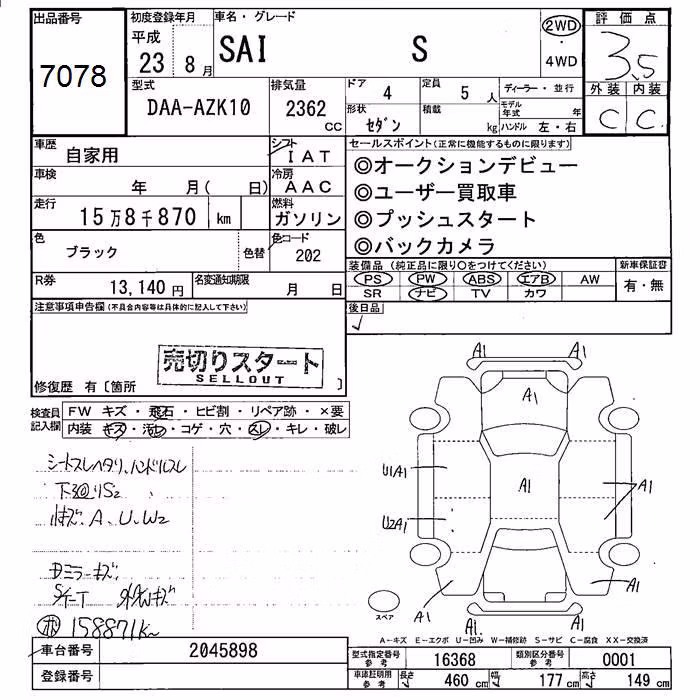 出品番号
7078
初度登録年月
平成
23 8月
車名・グレード
SAI S
2WD
・
4WD
評価点
3.5
外装 内装
C C
型式
DAA-AZK10
排気量
2362
CC
ドア 4
定員 5 人
ディーラー・並行
形状
セダン
積載 kg
モデル年式 年
ハンドル 左・右
車歴
自家用
シフト
IAT
車検
年 月( 日)
冷房
AAC
走行
15万8千870 km
燃料
ガソリン
色
ブラック
色替
色コード
202
R券
13,140 円
名変通知期限
月 日
セールスポイント(正常に機能するものに限ります)
◎オークションデビュー
◎ユーザー買取車
◎プッシュスタート
◎バックカメラ
装備品 (純正品に限り○をつけてください)
新車保証書
PS PW ABS エアB AW
SR ナビ TV カワ
有・無
後日品
注意事項申告欄(不具合内容等は具体的に記入して下さい)
売切りスタート
SELLOUT
修復歴 有〔箇所 〕
検査員
記入欄
FW キズ・飛石・ヒビ割・リペア跡・×要
内装 キズ・汚レ・コゲ・穴・スレ・キレ・破レ
シートスレヘタリ、ハンドルスレ
下廻りS2
小キズ、A、U、W2
Dミラーキズ
158871K
A1 A1
A1
U1A1
A1
A1
U2A1
A1
A1
A1
A1.
スペア
A-キズ E-エクボ U-凹み W-補修跡 S-サビ C-腐食 XX-交換済
車台番号
2045898
登録番号
型式指定番号
参考
16368
類別区分番号
参考
0001
車庫証明用
参考
長さ 460 cm
幅 177 cm
高さ 149 cm